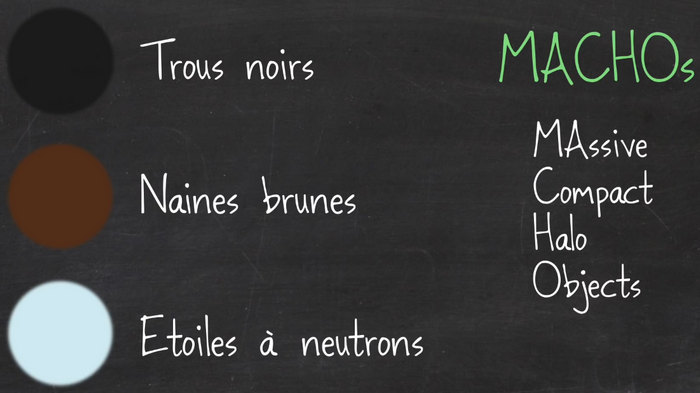 Trous noirs
Naines brunes
Etoiles à neutrons
MACHOs
MAssive
Compact
Halo
Objects